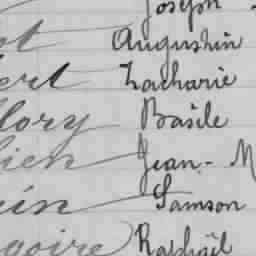 Joseph
Augustin
ert Zacharie
lory Basile
ien Jean-M
in Samson
goire Raphaël